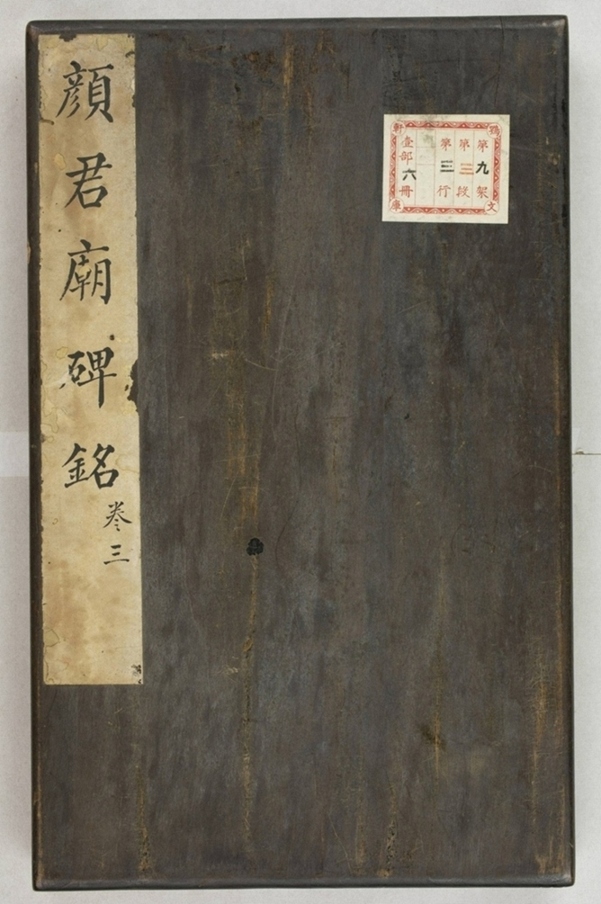 顔君廟碑銘
卷三
第九架
第三段
第三行
壹部六冊
鶚軒文庫